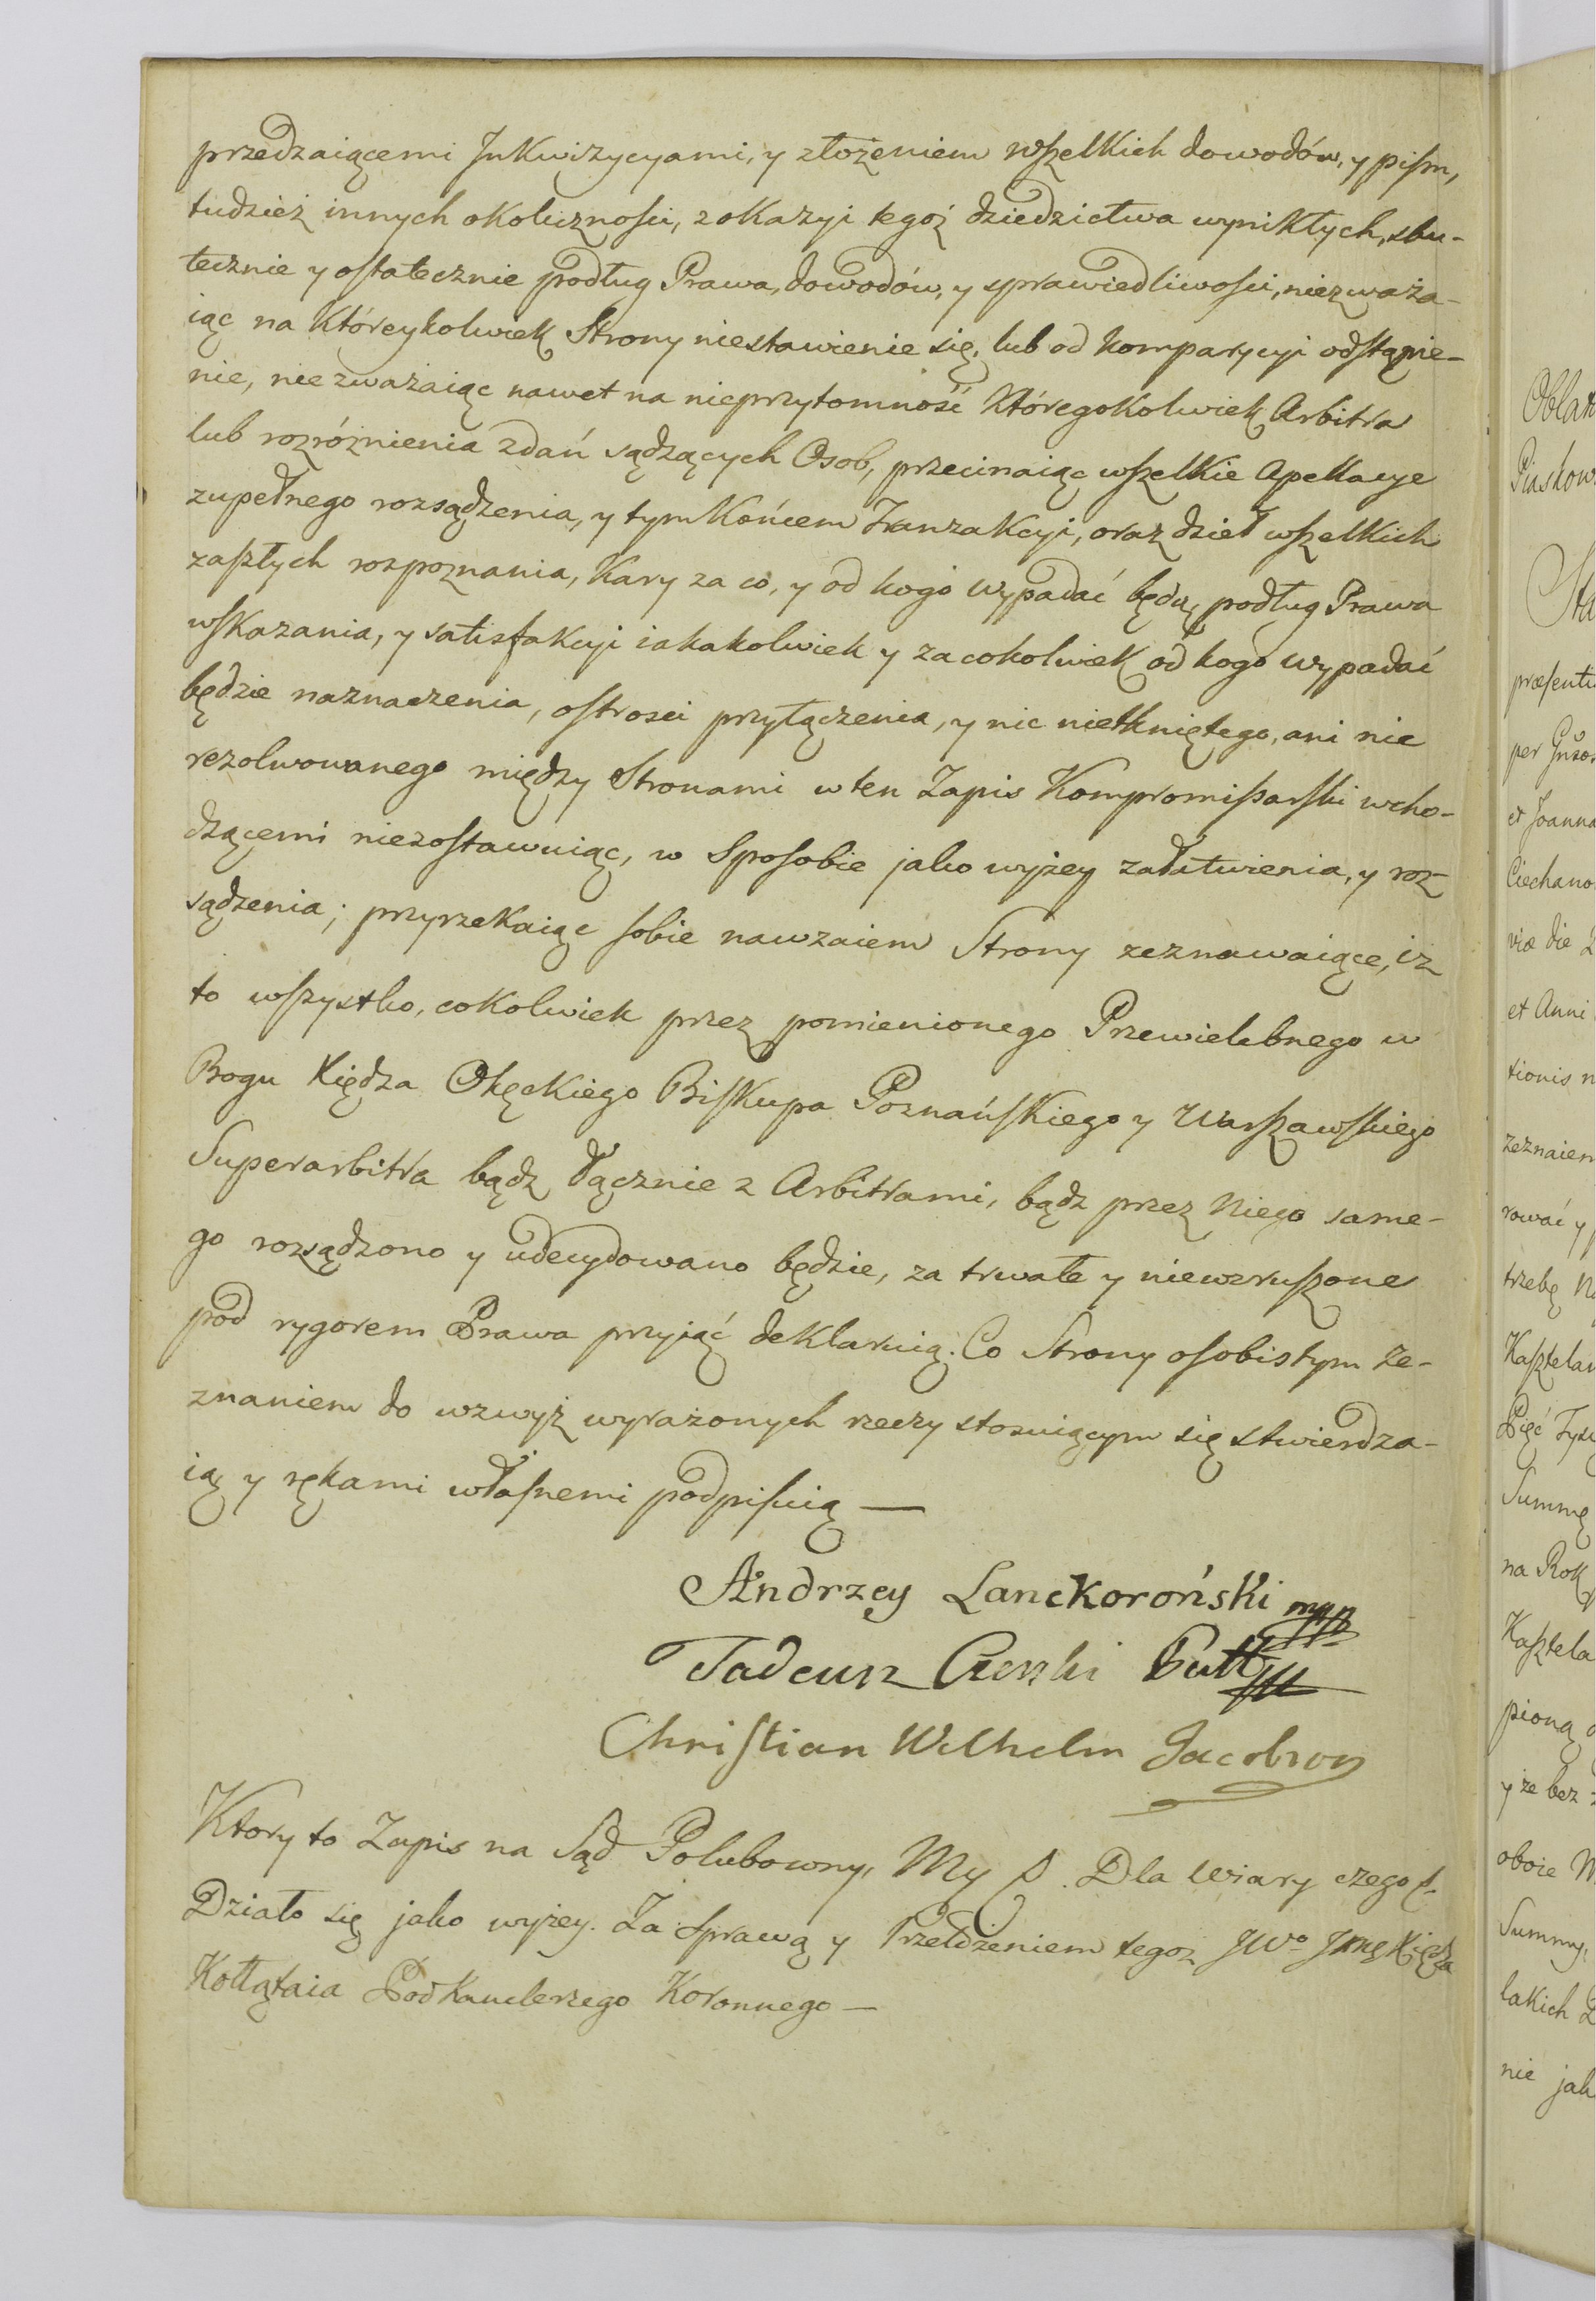 przedzaiącemi Inkwizycyami, y złożeniem wszelkich dowodów, y pism,
tudzież innych okoliczności, z okazyi tegoż dziedzictwa wynikłych, sku-
tecznie y ostatecznie podług Prawa, dowodów, y sprawiedliwości, niezważa-
iąc na któreykolwiek Strony niestawienie się, lub od komparycyi odstąpie-
nie, nie zważaiąc nawet na nieprzytomność któregokolwiek Arbitra
lub rozróżnienia zdań sądzących Osob, przecinaiąc wszelkie Apellacye
zupełnego rozsądzenia, y tym końcem Tranzakcyi, oraz dzieł wszelkich
zaszłych rozpoznania, Kary za co, y od kogo wypadać będą, podług Prawa
wskazania, y satisfakcyi iakakolwiek y za cokolwiek od kogo wypadać
będzie naznaczenia, ostrości przyłączenia, y nic nietkniętego, ani nie
rezolwowanego między Stronami w ten Zapis Kompromissarski wcho-
dzącemi niezostawuiąc, w Sposobie jako wyżey załatwienia, y roz-
sądzenia; przyrzekaiąc sobie nawzaiem Strony zeznawaiące, iż
to wszystko, cokolwiek przez pomienionego Przewielebnego w
Bogu Xiędza Okęckiego Biskupa Poznańskiego y Warszawskiego
Superarbitra bądź łącznie z Arbitrami, bądź przez Niego same-
go rozsądzono y udecydowano będzie, za trwałe y niewzruszone
pod rygorem Prawa przyjąć deklaruią. Co Strony osobistym ze-
znaniem do wzwyż wyrażonych rzeczy stosuiącym się stwierdza-
ią y rękami własnemi podpisuią —
Andrzey Lanckoroński mpp
Tadeusz Czenki
Christian Wilhelm Jacobson
Ktory to Zapis na Sąd Polubowny, My P. Dla Wiary czego P.
Działo się jako wyżey. Za Sprawą y Przełożeniem tegoż JWo Jmć Xiędza
Kołłątaia Podkanclerzego Koronnego —
Piaskow
præsent
per
et Joanna
Ciechano
viæ die
et Anni
tionis n
zeznaiem
rować y
trzebę
Kasztelan
Pięć Tysi
Summę
na Rok
Kasztela
pioną
y że bez
oboie
Summy,
lakich
nie jak